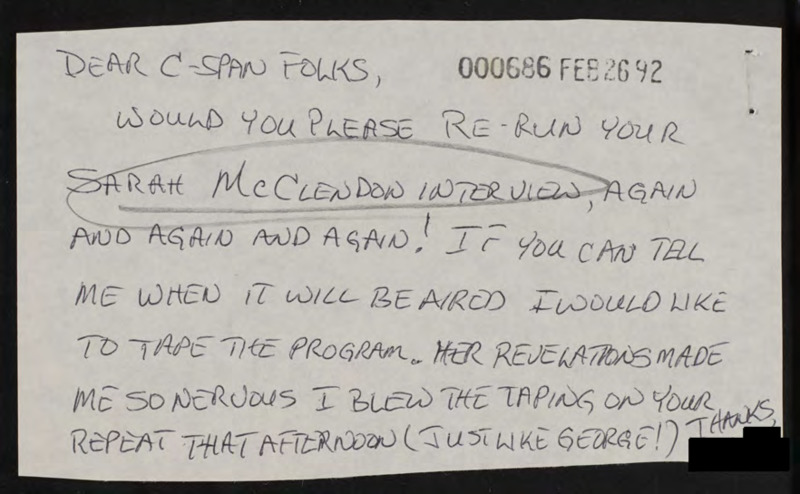 DEAR C-SPAN FOLKS,
000686 FEB 26 92
WOULD YOU PLEASE RE-RUN YOUR
SARAH McCLENDON INTERVIEW, AGAIN
AND AGAIN AND AGAIN! IF YOU CAN TELL
ME WHEN IT WILL BE AIRED I WOULD LIKE
TO TAPE THE PROGRAM. HER REVELATIONS MADE
ME SO NERVOUS I BLEW THE TAPING ON YOUR
REPEAT THAT AFTERNOON (JUST LIKE GEORGE!) THANKS,